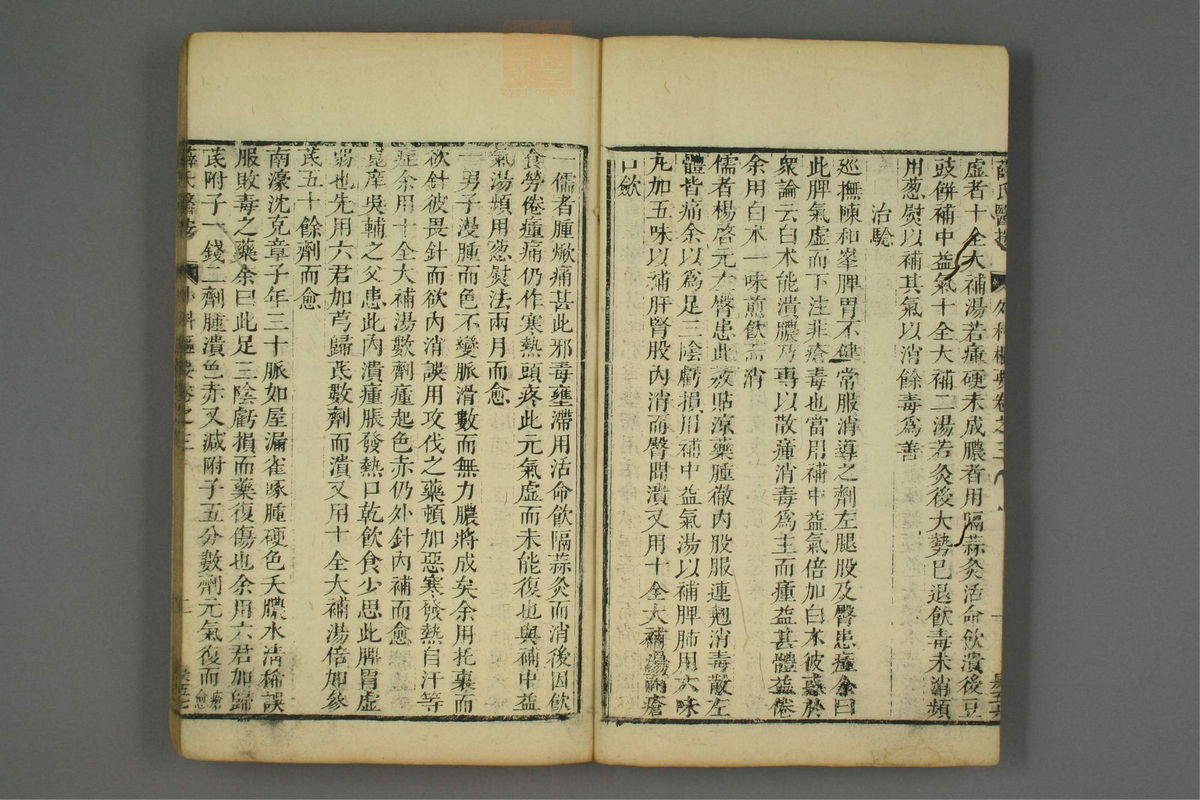 薛氏醫按 外科樞要卷之三
虛者十全大補湯若瘇硬未成膿者用隔蒜灸活命飲潰後豆
豉餅補中益氣十全大補二湯若灸後大勢已退飲毒未消頻
用葱熨以補其氣以消餘毒爲善
治驗
巡撫陳和峯脾胃不健常服消導之劑左腿股及臀患瘇余曰
此脾氣虛而下注非瘡毒也當用補中益氣倍加白朮彼惑於
衆論云白朮能潰膿乃專以散瘇消毒爲主而瘇益甚體益倦
余用白朮一味煎飲而消
儒者楊啓元左臀患此敷貼凉藥瘇徹內股服連翹消毒散左
體皆痛余以爲足三陰虧損用補中益氣湯以補脾肺用六味
丸加五味以補肝腎股內消而臀間潰又用十全大補湯而瘡
口斂
一儒者腫焮痛甚此邪毒壅滯用活命飲隔蒜灸而消後因飲
食勞倦瘇痛仍作寒熱頭疼此元氣虛而未能復也與補中益
氣湯頻用葱熨法兩月而愈
一男子漫腫而色不變脈滑數而無力膿將成矣余用托裏而
欲針彼畏針而欲內消誤用攻伐之藥頓加惡寒發熱自汗等
症余用十全大補湯數劑瘇起色赤仍外針內補而愈
寬庠吳輔之父患此內潰瘇脹發熱口乾飲食少思此脾胃虛
弱也先用六君加芎歸芪數劑而潰又用十全大補湯倍加參
芪五十餘劑而愈
南濠沈克章子年三十脈如屋漏雀啄腫硬色夭膿水清稀誤
服敗毒之藥余曰此足三陰虧損而藥復傷也余用六君加歸
芪附子一錢二劑腫潰色赤又減附子五分數劑元氣復而瘡愈
薛氏醫按 外科樞要卷之三 二